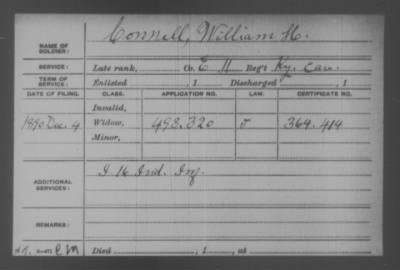 NAME OF SOLDIER: Connell, William H.
SERVICE: Late rank, Co. E 11 Reg't Ky. Cav.
TERM OF SERVICE: Enlisted , 1 Discharged , 1
DATE OF FILING. CLASS. APPLICATION NO. LAW. CERTIFICATE NO.
Invalid,
1890 Dec. 4 Widow, 493.320 369.414
Minor,
ADDITIONAL SERVICES: I 16 Ind. Inf.
REMARKS:
Died , 1 , at